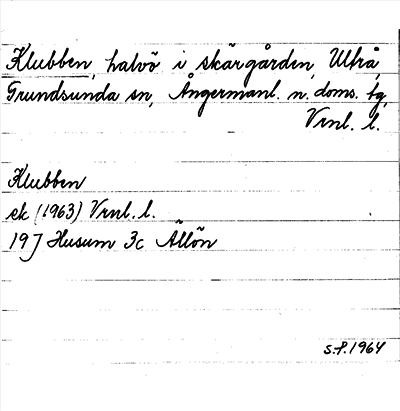 Klubben, halvö i skärgården, Ulfrå,
Grundsunda sn, Ångermanl. n. doms. tg,
Vrnl. l.
Klubben
ek (1963) Vrnl. l.
19J Husum 3c Ällön
S.P. 1964